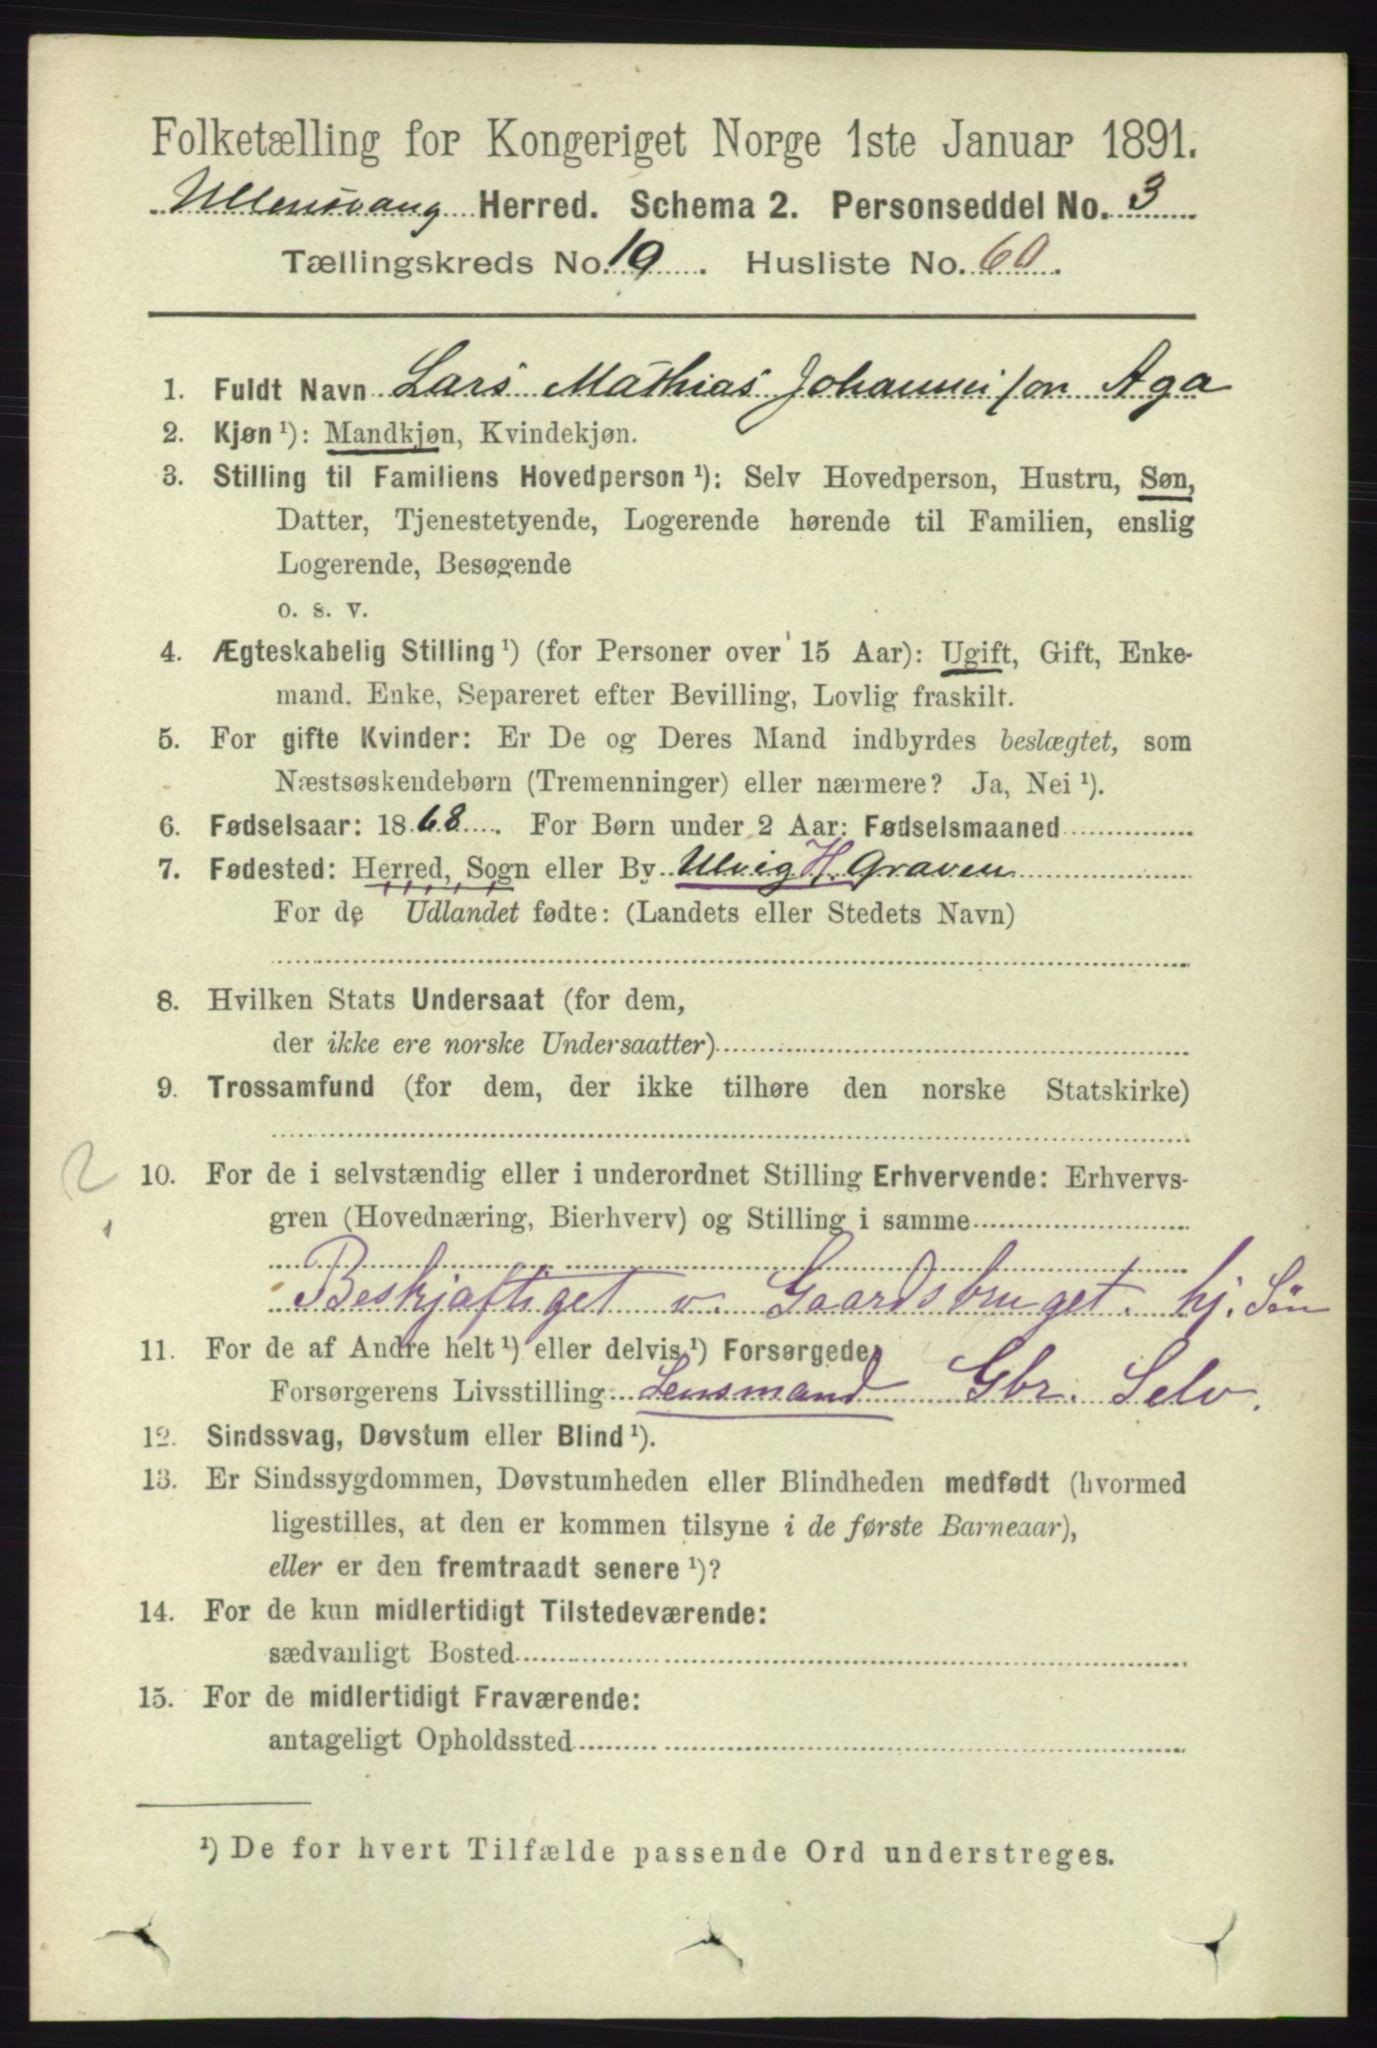 Folketælling for Kongeriget Norge 1ste Januar 1891.
Ullensvang Herred. Schema 2. Personseddel No. 3
Tællingskreds No. 19. Husliste No. 60.
1. Fuldt Navn Lars Mathias Johannesson Aga
2. Kjøn ¹): Mandkjøn, Kvindekjøn.
3. Stilling til Familiens Hovedperson ¹): Selv Hovedperson, Hustru, Søn,
Datter, Tjenestetyende, Logerende hørende til Familien, enslig
Logerende, Besøgende
o. s. v.
4. Ægteskabelig Stilling ¹) (for Personer over 15 Aar): Ugift, Gift, Enke-
mand, Enke, Separeret efter Bevilling, Lovlig fraskilt.
5. For gifte Kvinder: Er De og Deres Mand indbyrdes beslægtet, som
Næstsøskendebørn (Tremenninger) eller nærmere? Ja, Nei ¹).
6. Fødselsaar: 1868. For Børn under 2 Aar: Fødselsmaaned
7. Fødested: Herred, Sogn eller By Ulvig H. Graven
For de Udlandet fødte: (Landets eller Stedets Navn)
8. Hvilken Stats Undersaat (for dem,
der ikke ere norske Undersaatter)
9. Trossamfund (for dem, der ikke tilhøre den norske Statskirke)
2
10. For de i selvstændig eller i underordnet Stilling Erhvervende: Erhvervs-
gren (Hovednæring, Bierhverv) og Stilling i samme
Beskjæftiget v. Gaardsbruget. hj. Søn
11. For de af Andre helt ¹) eller delvis ¹) Forsørgede,
Forsørgerens Livsstilling Lensmand Gbr. Selv.
12. Sindssvag, Døvstum eller Blind ¹).
13. Er Sindssygdommen, Døvstumheden eller Blindheden medfødt (hvormed
ligestilles, at den er kommen tilsyne i de første Barneaar),
eller er den fremtraadt senere ¹)?
14. For de kun midlertidigt Tilstedeværende:
sædvanligt Bosted
15. For de midlertidigt Fraværende:
antageligt Opholdssted
¹) De for hvert Tilfælde passende Ord understreges.